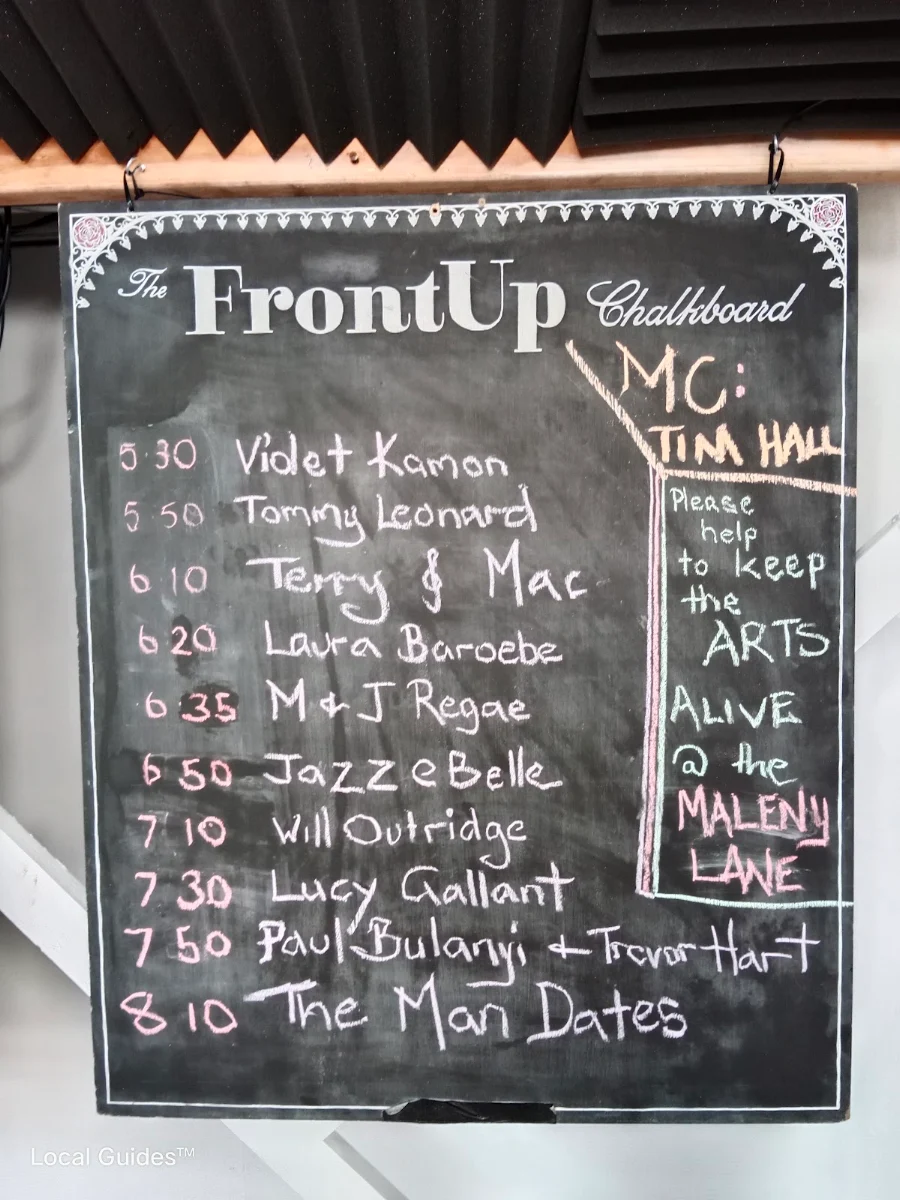 The FrontUp Chalkboard
MC:
TIM HALL
5.30 Violet Kamon
5.50 Tommy Leonard
6 10 Terry & Mac
6 20 Laura Baroebe
6 35 M & J Regae
6 50 Jazz e Belle
7 10 Will Outridge
7 30 Lucy Gallant
7 50 Paul Bulanyi + Trevor Hart
8 10 The Man Dates
Please
help
to keep
the
ARTS
ALIVE
@ the
MALENY
LANE
Local Guides™